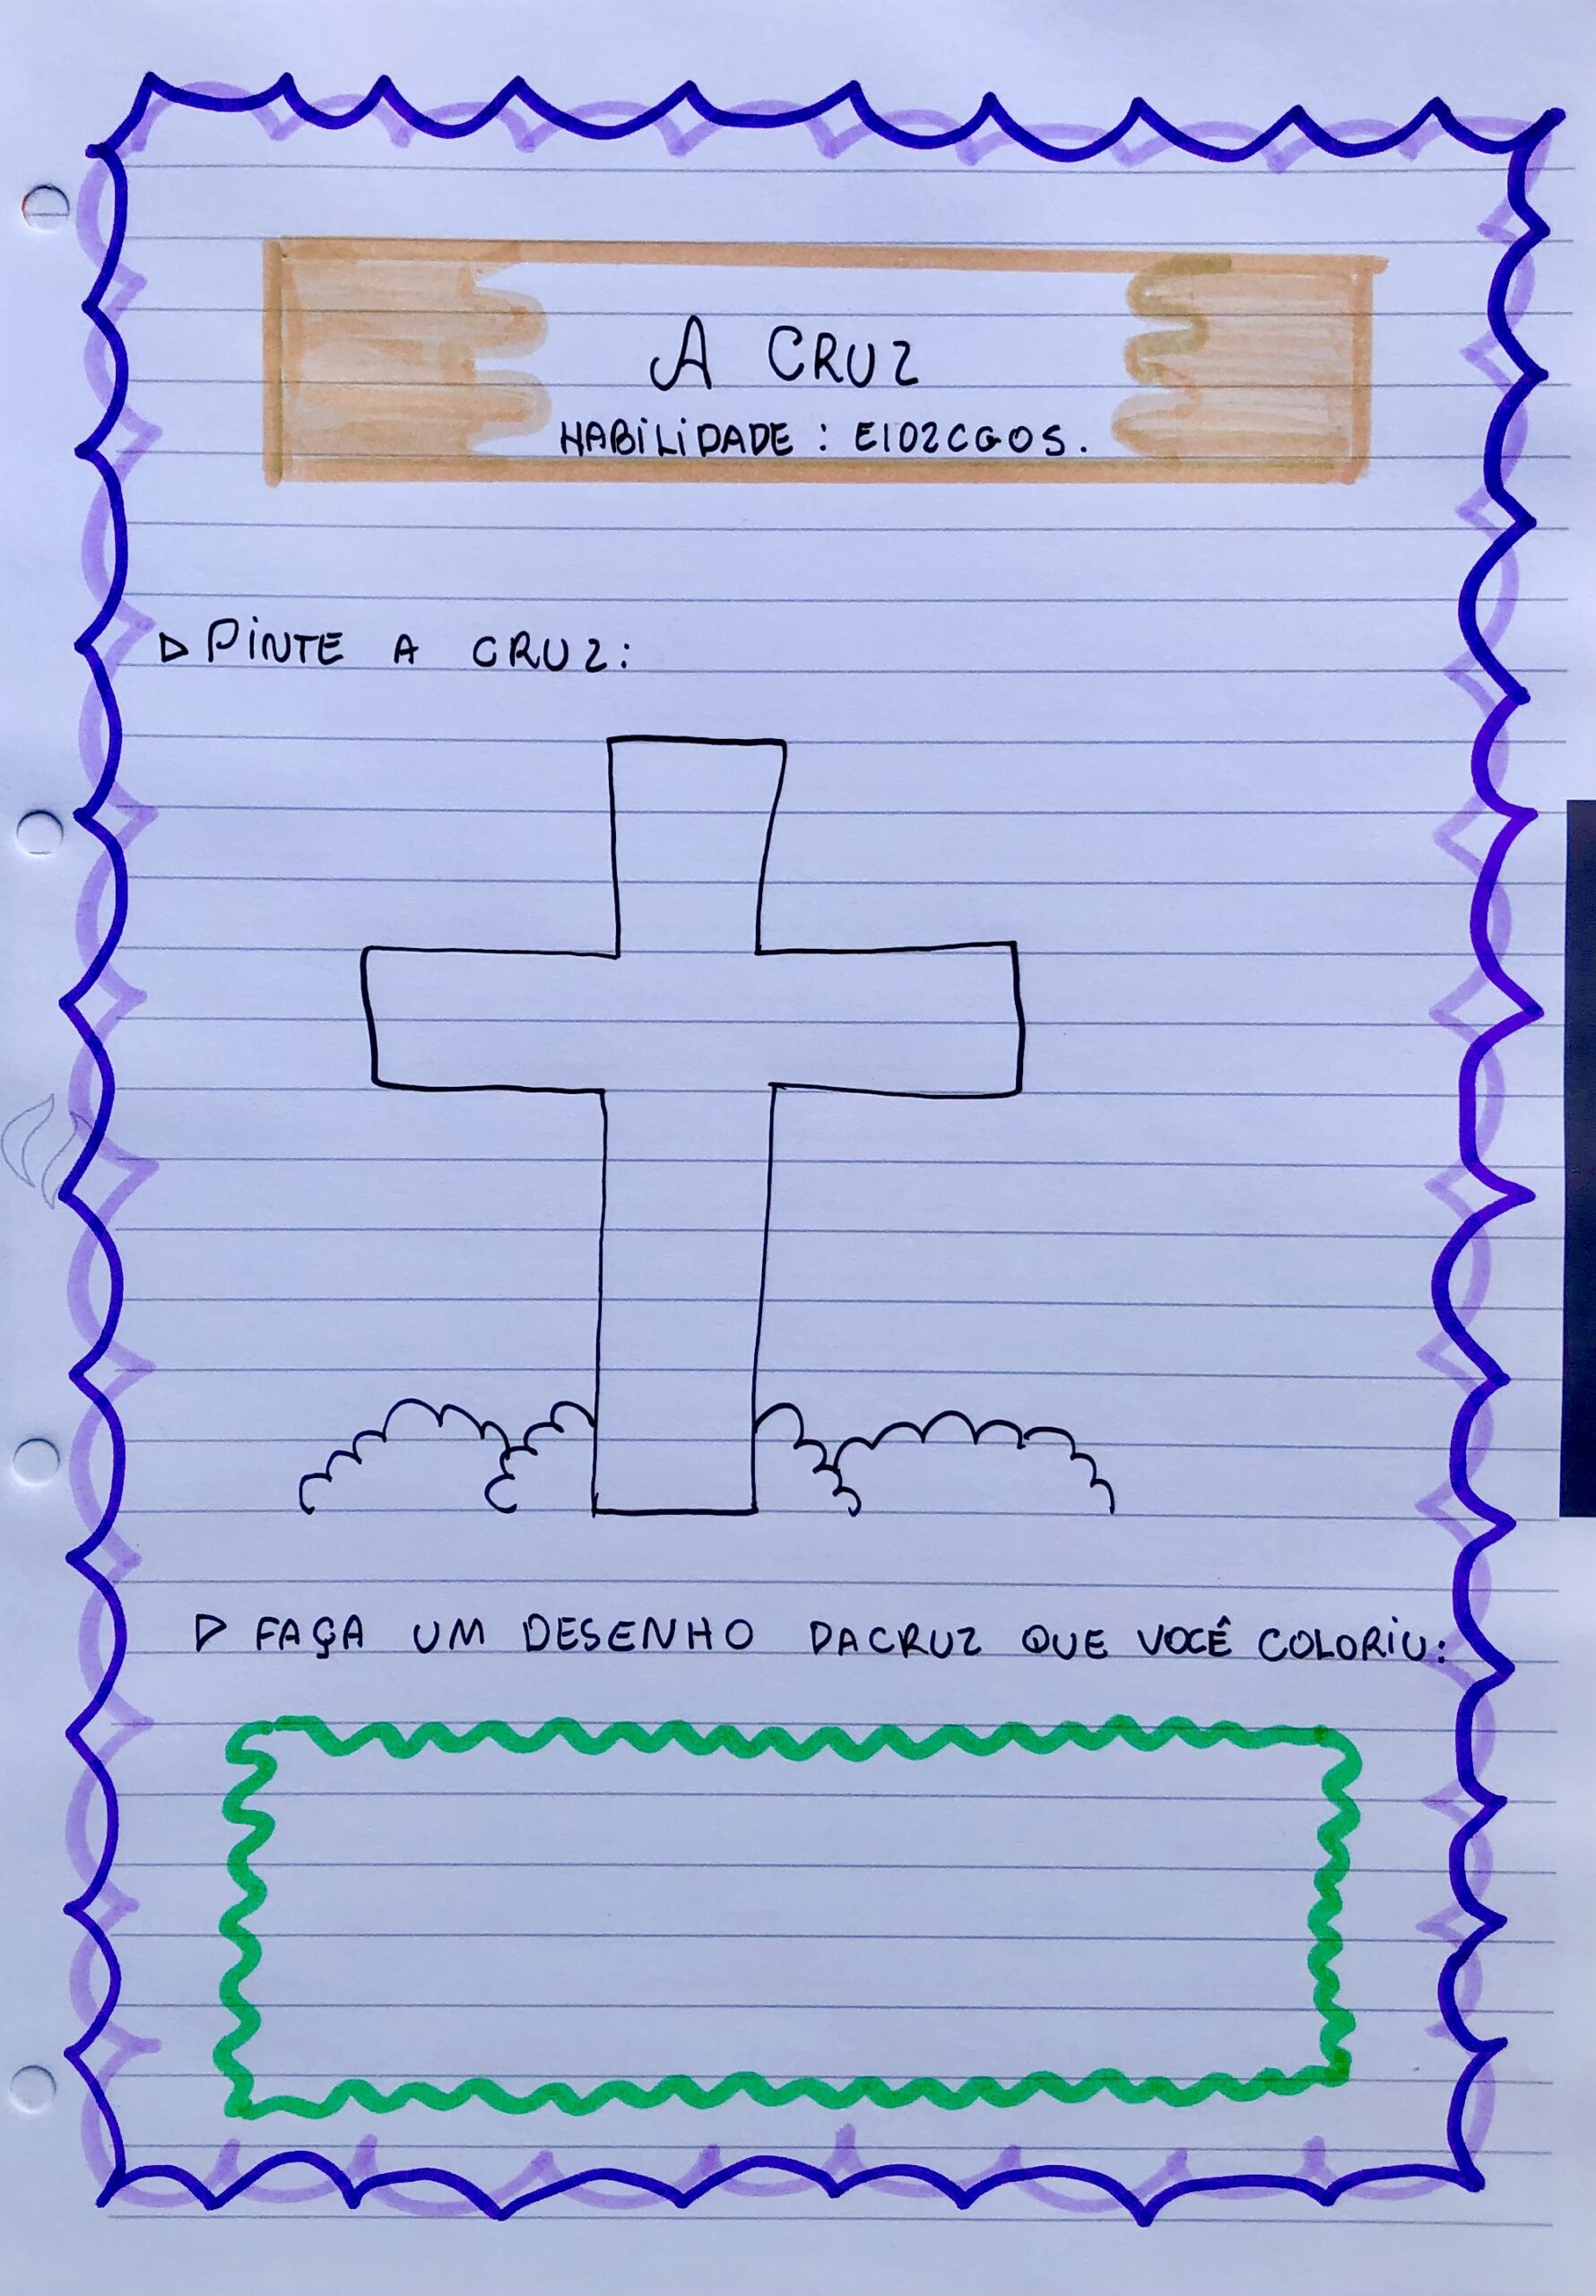 A CRUZ
HABILIDADE : EI02CG05.
▷ PINTE A CRUZ:
▷ FAÇA UM DESENHO DACRUZ QUE VOCÊ COLORIU: